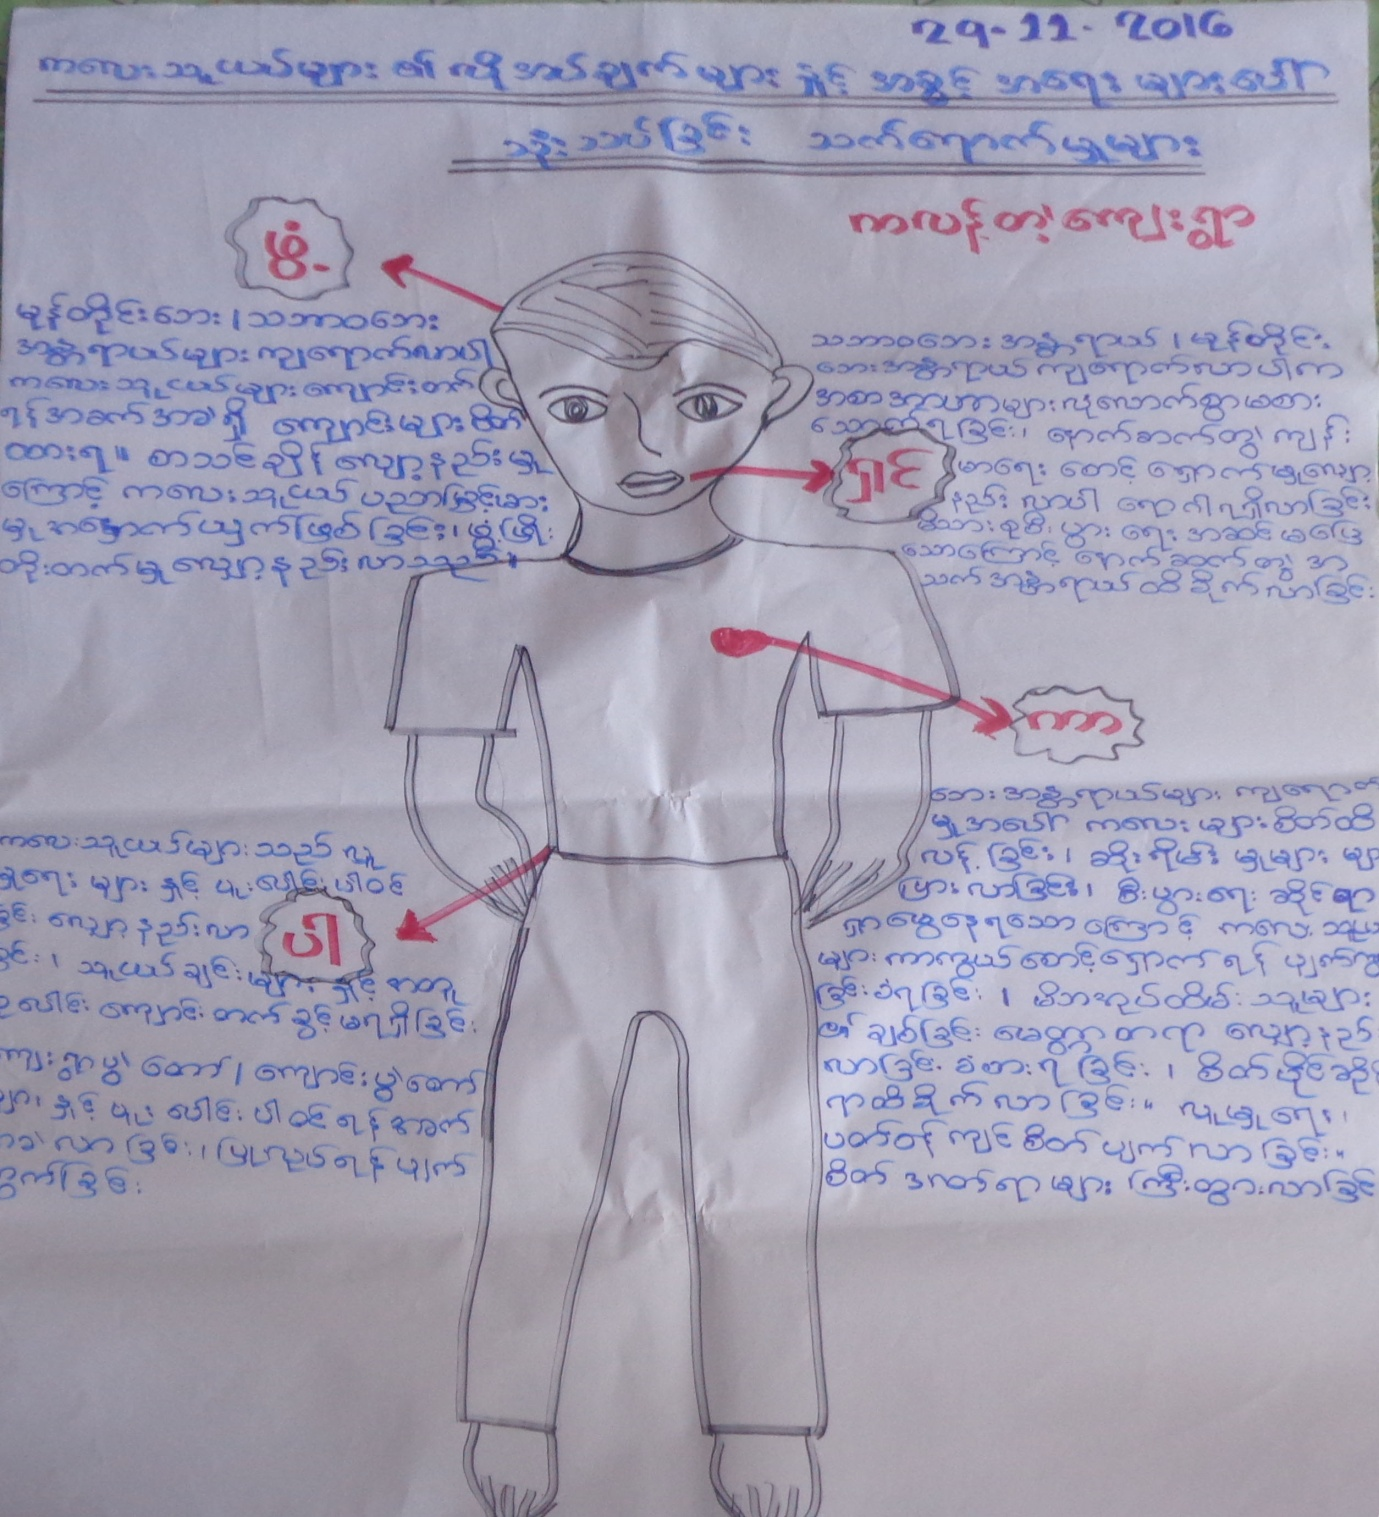 29-11-2016
ကလေးသူငယ်များ ၏ လိုအပ်ချက် များ နှင့် အခွင့် အရေး များပေါ်
သုံးသပ်ခြင်း သက်ရောက်မှုများ
ကလန့်တဲ့ကျေးရွာ
ဖွံ့-
မုန်တိုင်းဘေး၊ သဘာဝဘေး
အန္တရာယ်များ ကျရောက်လာပါ
ကလေးသူငယ်များ ကျောင်းတက်
ရန်အခက်အခဲရှိ ကျောင်းများပိတ်
ထားရ။ စာသင်ချိန် လျော့နည်းမှု
ကြောင့် ကလေးသူငယ် ပညာ
ဖြစ်ခြင်း၊ ဖွံ့ဖြိုး
တိုးတက်မှု လျော့နည်းလာသည်။
သဘာဝဘေး အန္တရာယ်၊ မုန်တိုင်း
ဘေးအန္တရာယ်ကျရောက်လာပါက
အစာအာဟာများလုံလောက်စွာမစား
သောက်ရခြင်း၊ နောက်ဆက်တွဲ ကျန်း
ရှင်
မာရေး စောင့်ရှောက်မှုလျော့
နည်းလာပါ ရောဂါရရှိလာခြင်း
မိသားစုစီးပွားရေး အဆင်မပြေ
သောကြောင့် နောက်ဆက်တွဲ အ
သက်အန္တရာယ်ထိခိုက်လာခြင်း
ကာ
ဘေးအန္တရာယ်များ ကျရောက်
မှုအပေါ် ကလေးများစိတ်ထိ
လန့်ခြင်း၊ ဆိုးရိမ်မှုများ များ
ပြားလာခြင်း၊ စီးပွားရေးဆိုင်ရာ
ရှာဖွေနေရသောကြောင့် ကလေးသူငယ်
များကာကွယ်စောင့်ရှောက်ရန် ပျက်ကွ
ခြင်းခံရခြင်း၊ မိဘအုပ်ထိန်းသူများ
၏ ချစ်ခြင်းမေတ္တာတရာ လျော့နည်
လာခြင်း ခံစားရခြင်း၊ စိတ်ပိုင်းဆို
ရာထိခိုက်လာခြင်း။ လူမှုရေး၊
ပတ်ဝန်းကျင်စိတ်ပျက်လာခြင်း။
စိတ်ဒဏ်ရာများ ကြီးထွားလာခြင်
ကလေးသူငယ်များသည် လူ
မှုရေးများနှင့် ပူးပေါင်းပါဝင်
ခြင်း လျော့နည်းလာ
ပါ
ခြင်း၊ သူငယ်ချင်းများနှင့် အတူ
ကျောင်းတက်ခွင့်မရရှိခြင်း
ကျေးရွာပွဲတော်၊ ကျောင်းပွဲတော်
များနှင့် ပူးပေါင်းပါဝင်ရန်အခက်
အခဲလာခြင်း၊ ပြုလုပ်ရန်ပျက်
ကွက်ခြင်း